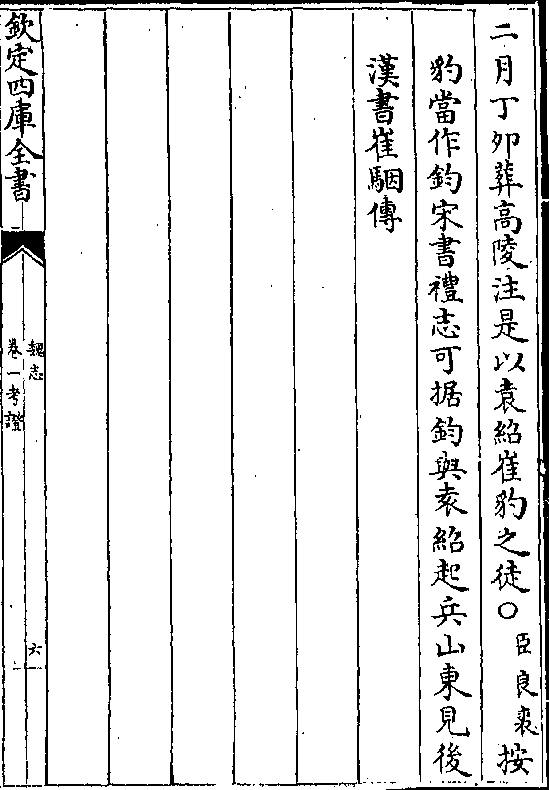 二月丁卯葬高陵注是以袁紹崔豹之徒○臣良裘按
豹當作鈞宋書禮志可据鈞與袁紹起兵山東見後
漢書崔駰傳
欽定四庫全書
魏志
卷一考證
六